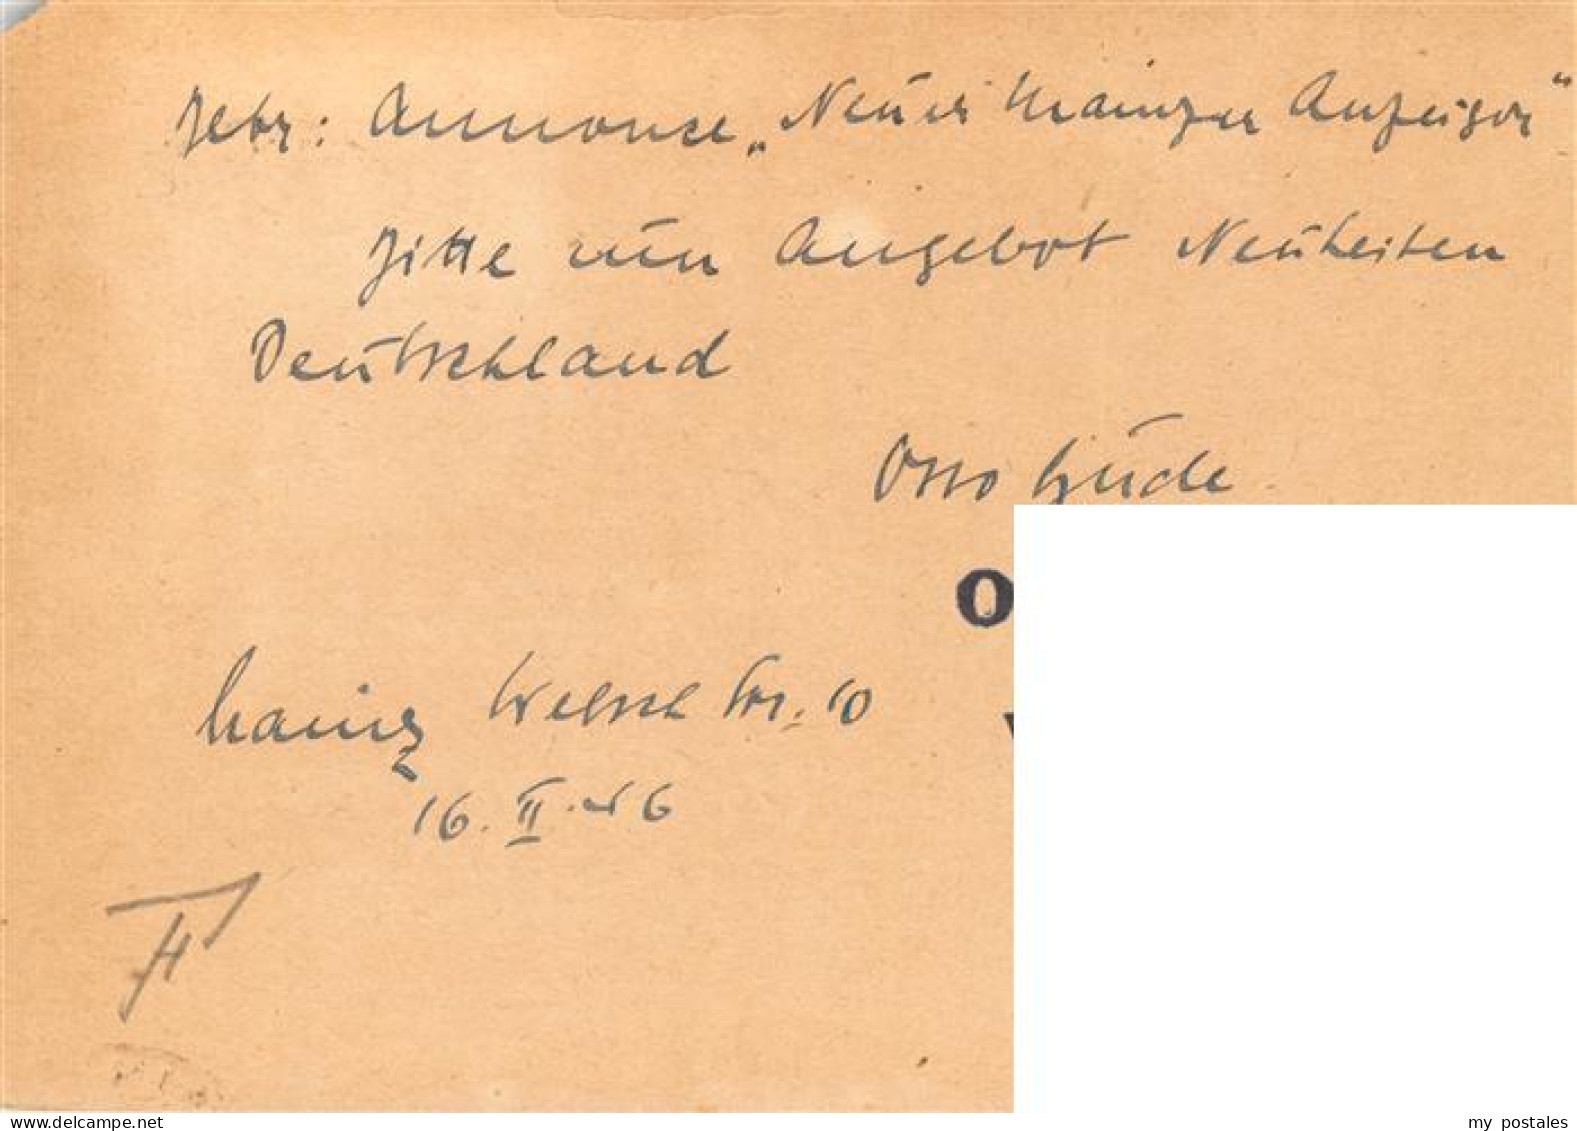 Betr: Annonce „Neuer Mainzer Anzeiger“
Bitte um Angebot Neuheiten
Deutschland
Otto Güde
O
Mainz Welschstr. 10
16. II. 46
H
delcampe.net
my postales